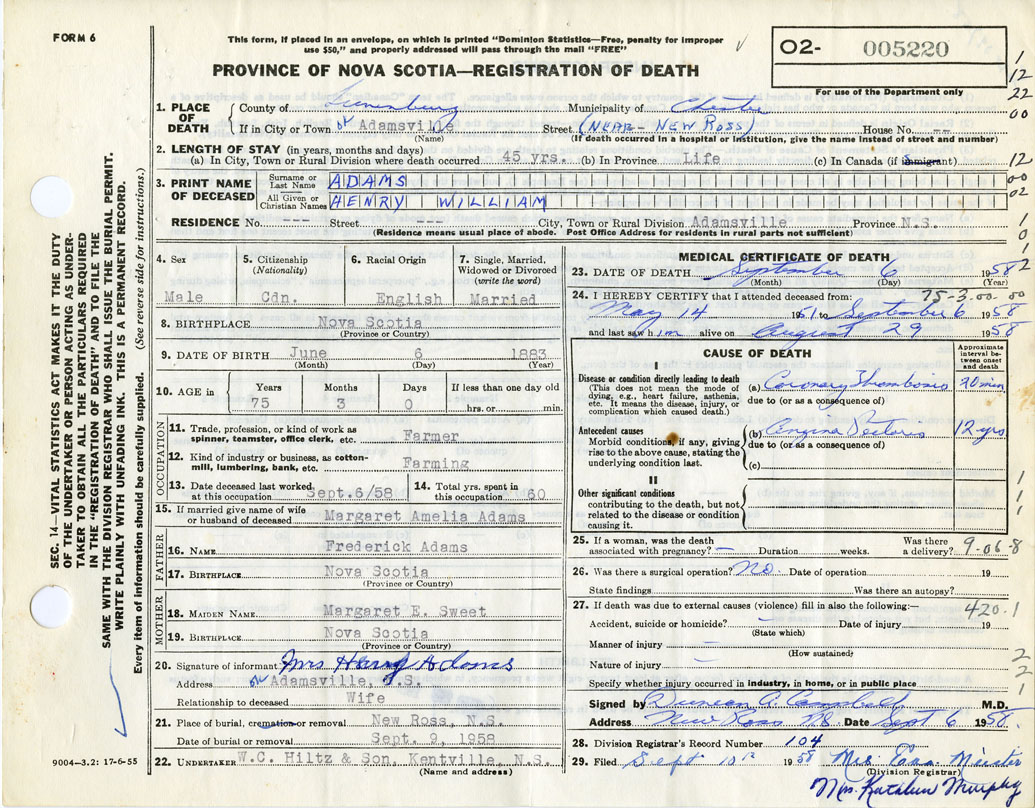 FORM 6
This form, if placed in an envelope, on which is printed "Dominion Statistics—Free, penalty for improper
use $50," and properly addressed will pass through the mail "FREE"
PROVINCE OF NOVA SCOTIA—REGISTRATION OF DEATH
O2- 005220
For use of the Department only
1
12
22
00
12
00
02
1
0
2
1. PLACE OF DEATH
County of Lunenburg Municipality of Chester
If in City or Town Adamsville Street (NEAR - NEW ROSS) House No. --
(Name) (If death occurred in a hospital or institution, give the name instead of street and number)
2. LENGTH OF STAY (in years, months and days)
(a) In City, Town or Rural Division where death occurred 45 yrs. (b) In Province Life (c) In Canada (if immigrant)
3. PRINT NAME OF DECEASED
Surname or Last Name ADAMS
All Given or Christian Names HENRY WILLIAM
RESIDENCE No. --- Street --- City, Town or Rural Division Adamsville Province N.S.
(Residence means usual place of abode. Post Office Address for residents in rural parts not sufficient)
4. Sex
Male
5. Citizenship
(Nationality)
Cdn.
6. Racial Origin
English
7. Single, Married,
Widowed or Divorced
(write the word)
Married
8. BIRTHPLACE Nova Scotia
(Province or Country)
9. DATE OF BIRTH June 6 1883
(Month) (Day) (Year)
10. AGE in
Years Months Days If less than one day old
75 3 0 hrs. or min.
OCCUPATION
11. Trade, profession, or kind of work as
spinner, teamster, office clerk, etc. Farmer
12. Kind of industry or business, as cotton-
mill, lumbering, bank, etc. Farming
13. Date deceased last worked
at this occupation Sept.6/58
14. Total yrs. spent in
this occupation 60
15. If married give name of wife
or husband of deceased Margaret Amelia Adams
FATHER
16. NAME Frederick Adams
17. BIRTHPLACE Nova Scotia
(Province or Country)
MOTHER
18. MAIDEN NAME Margaret E. Sweet
19. BIRTHPLACE Nova Scotia
(Province or Country)
20. Signature of informant Mrs Harry Adams
Address Adamsville, N.S.
Relationship to deceased Wife
21. Place of burial, cremation or removal New Ross, N.S.
Date of burial or removal Sept. 9, 1958
22. UNDERTAKER W.C. Hiltz & Son, Kentville, N.S.
(Name and address)
MEDICAL CERTIFICATE OF DEATH
23. DATE OF DEATH September 6 1958
(Month) (Day) (Year)
75-3.00.00
24. I HEREBY CERTIFY that I attended deceased from:
May 14 1951 to September 6 1958
and last saw him alive on August 29 1958
CAUSE OF DEATH
Approximate
interval be-
tween onset
and death
I
Disease or condition directly leading to death
(This does not mean the mode of
dying, e.g., heart failure, asthenia,
etc. It means the disease, injury, or
complication which caused death.)
(a) Coronary Thrombosis 20 min
due to (or as a consequence of)
Antecedent causes
Morbid conditions, if any, giving
rise to the above cause, stating the
underlying condition last.
(b) Angina Pectoris 12 yrs
due to (or as a consequence of)
(c)
II
Other significant conditions
contributing to the death, but not
related to the disease or condition
causing it.
1
1
1
25. If a woman, was the death
associated with pregnancy? — Duration weeks. Was there
a delivery? 9-06-8
26. Was there a surgical operation? No. Date of operation 19
State findings Was there an autopsy?
27. If death was due to external causes (violence) fill in also the following:—
420.1
Accident, suicide or homicide? — Date of injury 19
(State which)
Manner of injury —
(How sustained)
Nature of injury —
Specify whether injury occurred in industry, in home, or in public place
2
2
1
Signed by Duncan A Campbell M.D.
Address New Ross NS Date Sept 6 1958.
28. Division Registrar's Record Number 104
29. Filed Sept 10th 1958 Mrs. Eva Meister
(Division Registrar)
Mrs. Kathleen Murphy
SEC. 14—VITAL STATISTICS ACT MAKES IT THE DUTY
OF THE UNDERTAKER OR PERSON ACTING AS UNDER-
TAKER TO OBTAIN ALL THE PARTICULARS REQUIRED
IN THE "REGISTRATION OF DEATH" AND TO FILE THE
SAME WITH THE DIVISION REGISTRAR WHO SHALL ISSUE THE BURIAL PERMIT.
WRITE PLAINLY WITH UNFADING INK. THIS IS A PERMANENT RECORD.
Every item of information should be carefully supplied. (See reverse side for instructions.)
9004—3.2: 17-6-55